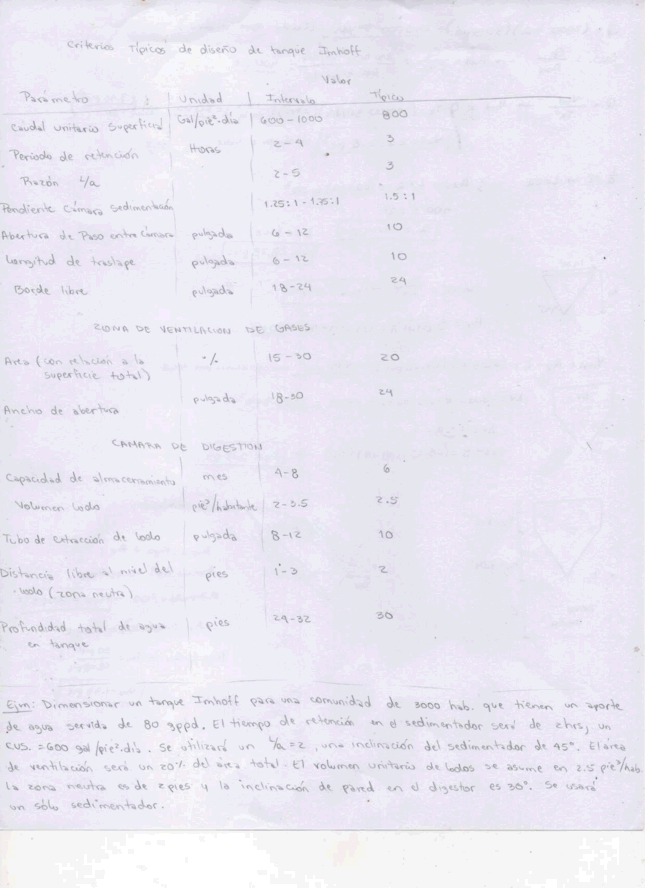 Criterios Típicos de diseño de tanque Imhoff
Valor
Parámetro Unidad Intervalo Típico
Caudal unitario Superficial Gal/pie².día 600-1000 800
Periodo de retención Horas 2-4 3
Razón L/a 2-5 3
Pendiente Cámara Sedimentación 1.25:1 - 1.75:1 1.5:1
Abertura de Paso entre Cámara pulgada 6-12 10
Longitud de traslape pulgada 6-12 10
Borde libre pulgada 18-24 24
ZONA DE VENTILACION DE GASES
Area (con relación a la % 15-30 20
superficie total)
Ancho de abertura pulgada 18-30 24
CAMARA DE DIGESTION
Capacidad de almacenamiento mes 4-8 6
Volumen lodo pie³/habitante 2-3.5 2.5
Tubo de extracción de lodo pulgada 8-12 10
Distancia libre al nivel del pies 1-3 2
lodo (zona neutra)
Profundidad total de agua pies 24-32 30
en tanque
Ejm: Dimensionar un tanque Imhoff para una comunidad de 3000 hab. que tienen un aporte
de agua servida de 80 gppd. El tiempo de retención en el sedimentador será de 2hrs, un
CUS. =600 gal/pie².día. Se utilizará un L/a =2, una inclinación del sedimentador de 45°. El área
de ventilación será un 20% del área total. El volumen unitario de lodos se asume en 2.5 pie³/hab.
la zona neutra es de 2pies y la inclinación de pared en el digestor es 30°. Se usará
un sólo sedimentador.